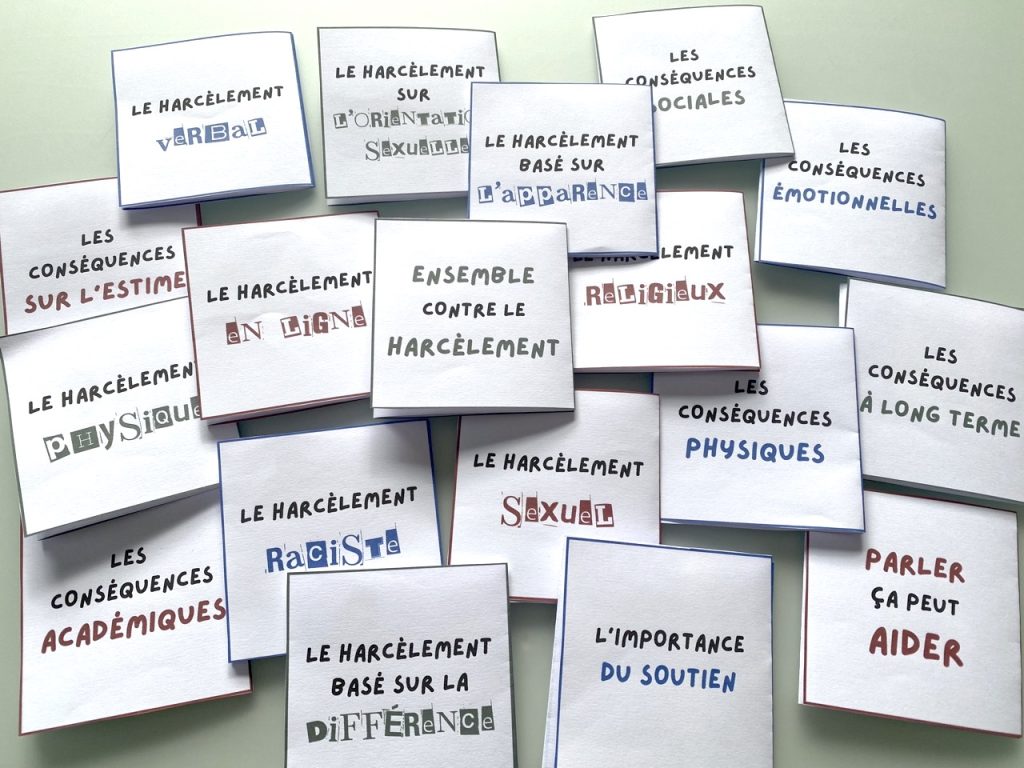 LE HARCÈLEMENT
VERBAL
LE HARCÈLEMENT
SUR
L'ORIENTATIO
SEXUELLE
LES
CONSÉQUENCES
SOCIALES
LE HARCÈLEMENT
BASÉ SUR
L'APPARENCE
LES
CONSÉQUENCES
ÉMOTIONNELLES
LES
CONSÉQUENCES
SUR L'ESTIME
LE HARCÈLEMENT
EN LIGNE
ENSEMBLE
CONTRE LE
HARCÈLEMENT
LE HARCÈLEMENT
RELIGIEUX
LE HARCÈLEMEN
PHYSIQUE
LES
CONSÉQUENCES
PHYSIQUES
LES
CONSÉQUENCES
À LONG TERME
LE HARCÈLEMENT
RACISTE
LE HARCÈLEMENT
SEXUEL
LES
CONSÉQUENCES
ACADÉMIQUES
LE HARCÈLEMENT
BASÉ SUR LA
DIFFÉRENCE
L'IMPORTANCE
DU SOUTIEN
PARLER
ÇA PEUT
AIDER